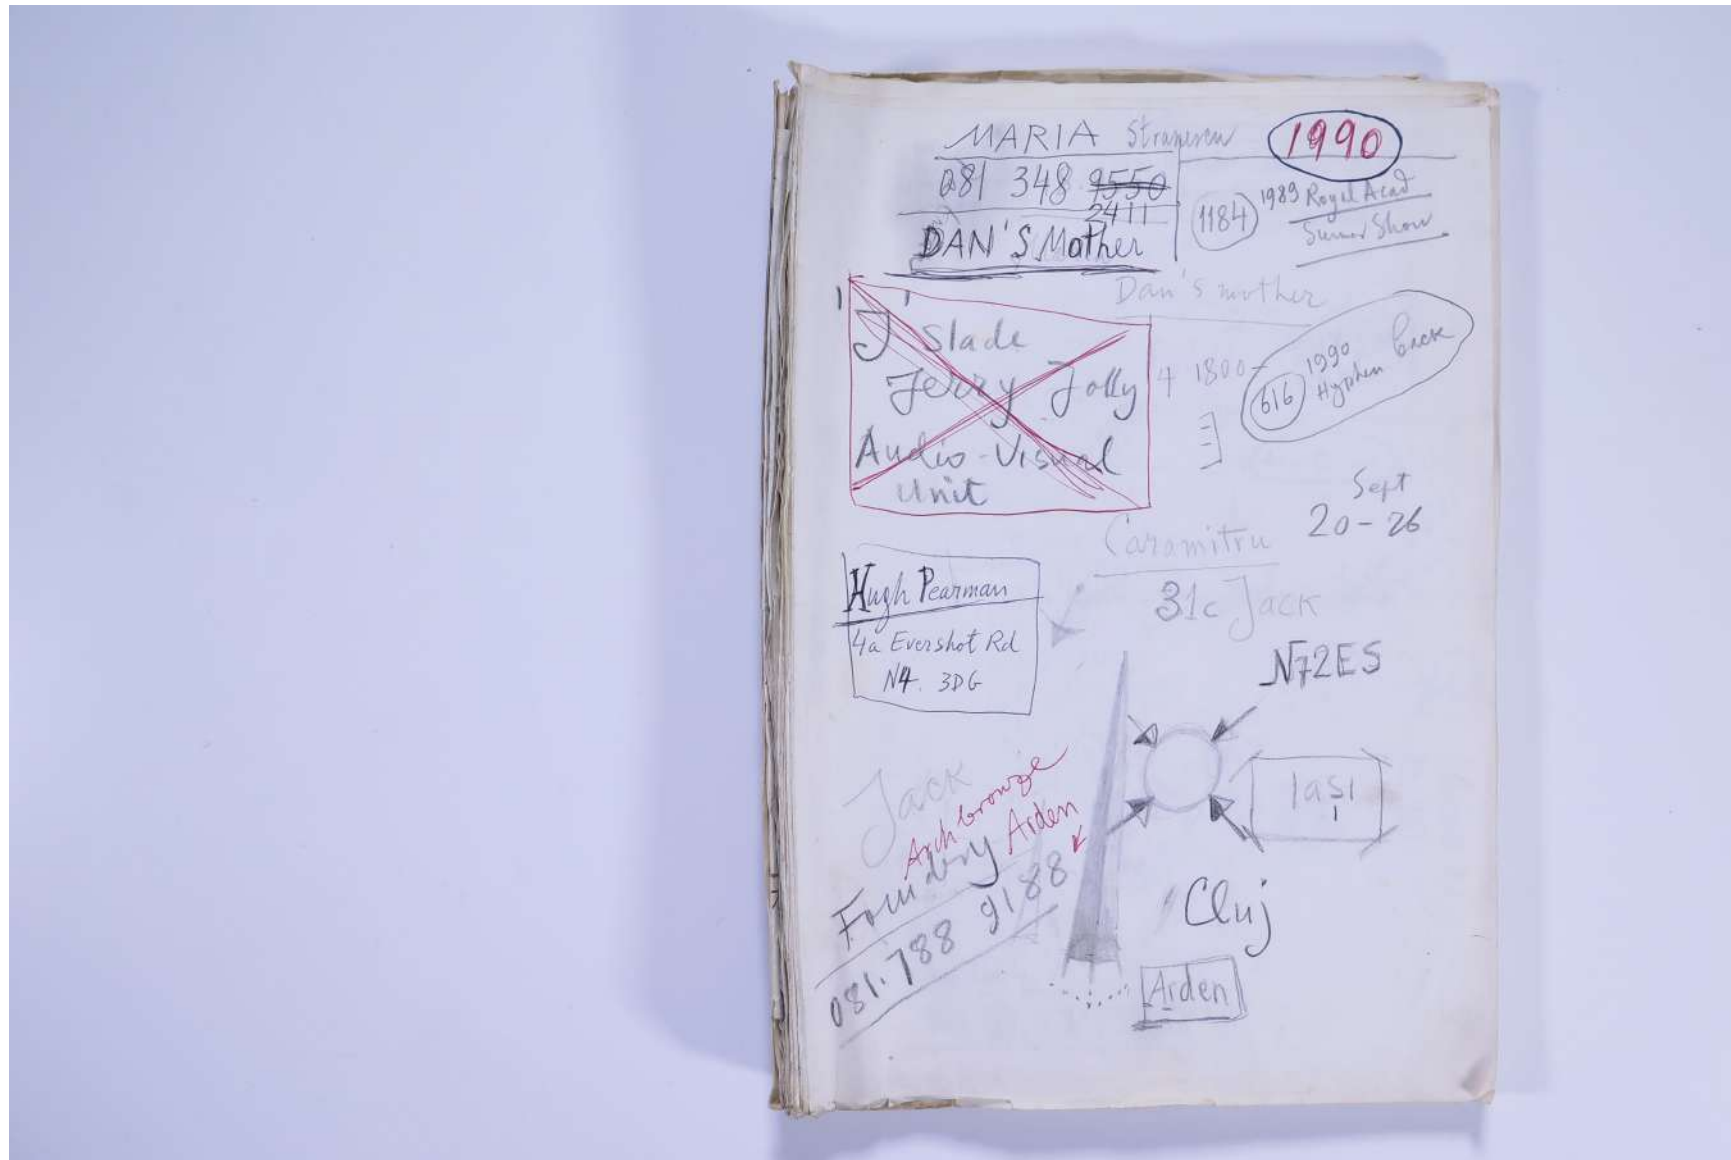 MARIA
1990
081 348 9550
2411
DAN'S Mother
1184 1989 Royal Acad
Summer Show
Dan's mother
J Slade
Jerry Jolly
Audio-Visual
Unit
4 1800-
616 1990
back
Sept
20-26
Caramitru
31c Jack
N72ES
Hugh Pearman
4a Evershot Rd
N4. 3DG
Iasi
Jack
Arch bronze
Foundry Arden
081.788 9188
Cluj
Arden